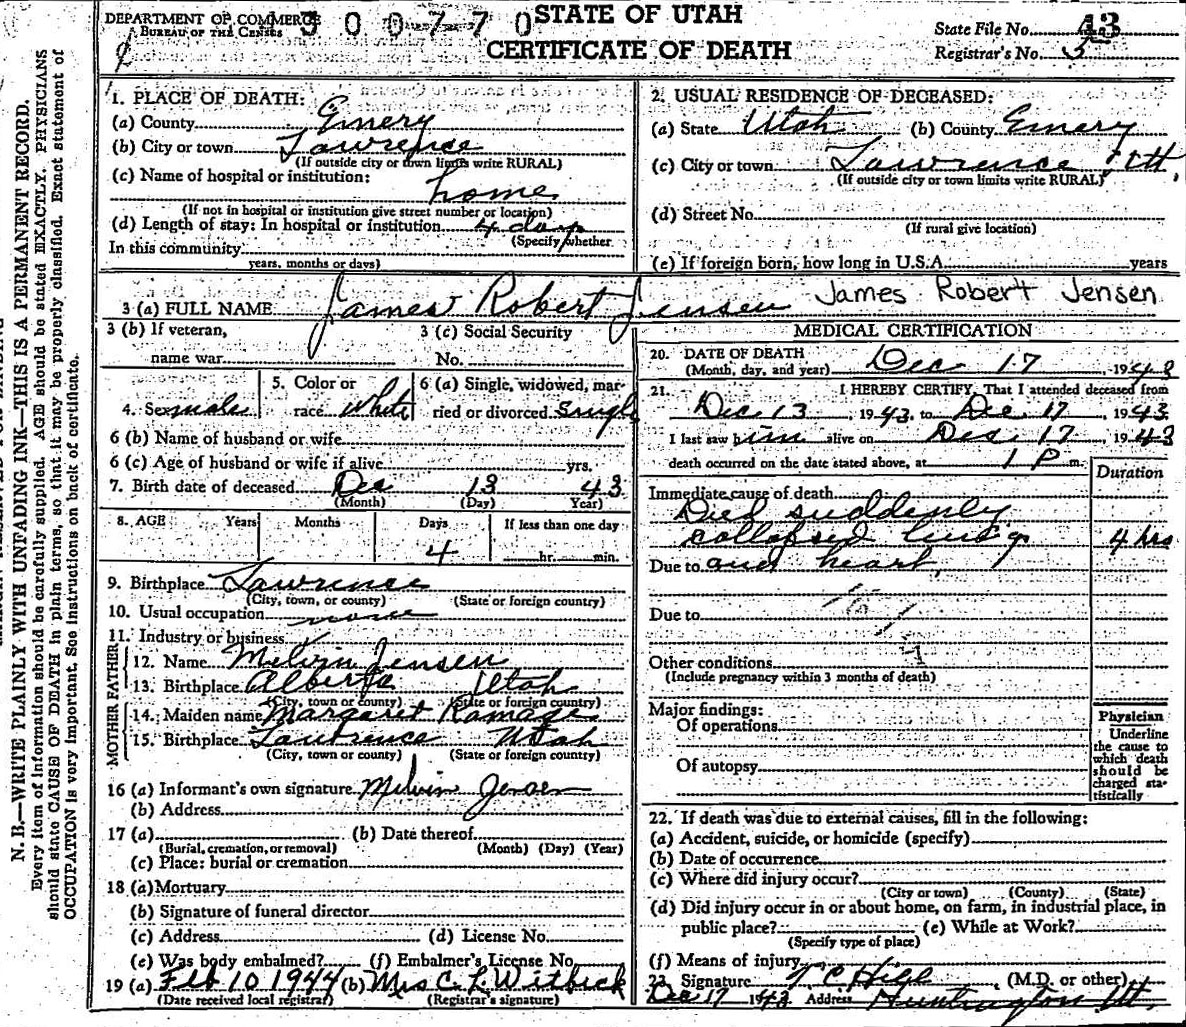 DEPARTMENT OF COMMERCE
BUREAU OF THE CENSUS
300770
STATE OF UTAH
CERTIFICATE OF DEATH
State File No. 43
Registrar's No. 3
N. B.—WRITE PLAINLY WITH UNFADING INK—THIS IS A PERMANENT RECORD.
Every item of information should be carefully supplied. AGE should be stated EXACTLY. PHYSICIANS
should state CAUSE OF DEATH in plain terms, so that it may be properly classified. Exact statement of
OCCUPATION is very important. See instructions on back of certificate.
1. PLACE OF DEATH:
(a) County Emery
(b) City or town Lawrence
(If outside city or town limits write RURAL)
(c) Name of hospital or institution:
home
(If not in hospital or institution give street number or location)
(d) Length of stay: In hospital or institution 4 days
(Specify whether
In this community
years, months or days)
2. USUAL RESIDENCE OF DECEASED:
(a) State Utah (b) County Emery
(c) City or town Lawrence Ut.
(If outside city or town limits write RURAL)
(d) Street No.
(If rural give location)
(e) If foreign born, how long in U.S.A. years
3 (a) FULL NAME James Robert Jensen James Robert Jensen
3 (b) If veteran,
name war
3 (c) Social Security
No.
4. Sex male
5. Color or
race White
6 (a) Single, widowed, mar-
ried or divorced Single
6 (b) Name of husband or wife
6 (c) Age of husband or wife if alive yrs.
7. Birth date of deceased Dec 13 43
(Month) (Day) Year)
8. AGE Years Months Days If less than one day
4 hr. min.
9. Birthplace Lawrence
(City, town, or county) (State or foreign country)
10. Usual occupation none
11. Industry or business
FATHER
12. Name Melvin Jensen
13. Birthplace Alberta Utah
(City, town or county) (State or foreign country)
MOTHER
14. Maiden name Margaret Ramage
15. Birthplace Lawrence Utah
(City, town or county) (State or foreign country)
16 (a) Informant's own signature Melvin Jensen
(b) Address
17 (a) (b) Date thereof
(Burial, cremation, or removal) (Month) (Day) (Year)
(c) Place: burial or cremation
18 (a) Mortuary
(b) Signature of funeral director
(c) Address (d) License No.
(e) Was body embalmed? (f) Embalmer's License No.
19 (a) Feb 10 1944 (b) Mrs C L Witbeck
(Date received local registrar) (Registrar's signature)
MEDICAL CERTIFICATION
20. DATE OF DEATH
(Month, day, and year) Dec 17 1943
21. I HEREBY CERTIFY, That I attended deceased from
Dec 13, 1943, to Dec. 17, 1943.
I last saw him alive on Dec. 17, 1943
death occurred on the date stated above, at 1 P m.
Duration
Immediate cause of death
Died suddenly
collapsed lungs 4 hrs
Due to and heart.
Due to
Other conditions
(Include pregnancy within 3 months of death)
Major findings:
Of operations
Of autopsy
Physician
Underline
the cause to
which death
should be
charged sta-
tistically
22. If death was due to external causes, fill in the following:
(a) Accident, suicide, or homicide (specify)
(b) Date of occurrence
(c) Where did injury occur?
(City or town) (County) (State)
(d) Did injury occur in or about home, on farm, in industrial place, in
public place? (e) While at Work?
(Specify type of place)
(f) Means of injury
23. Signature T C Hill (M.D. or other)
Dec 17 1943 Address Huntington Ut.